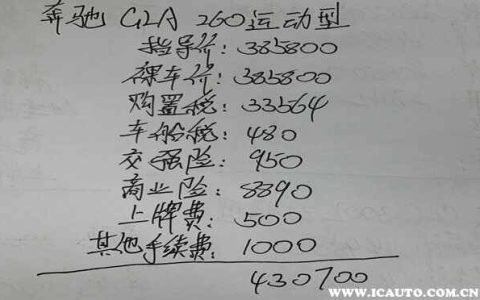 奔驰 GLA 260运动型
指导价: 385800
裸车价: 385800
购置税: 33564
车船税: 480
交强险: 950
商业险: 8890
上牌费: 500
其他手续费: 1000
430700
WWW.ICAUTO.COM.CN